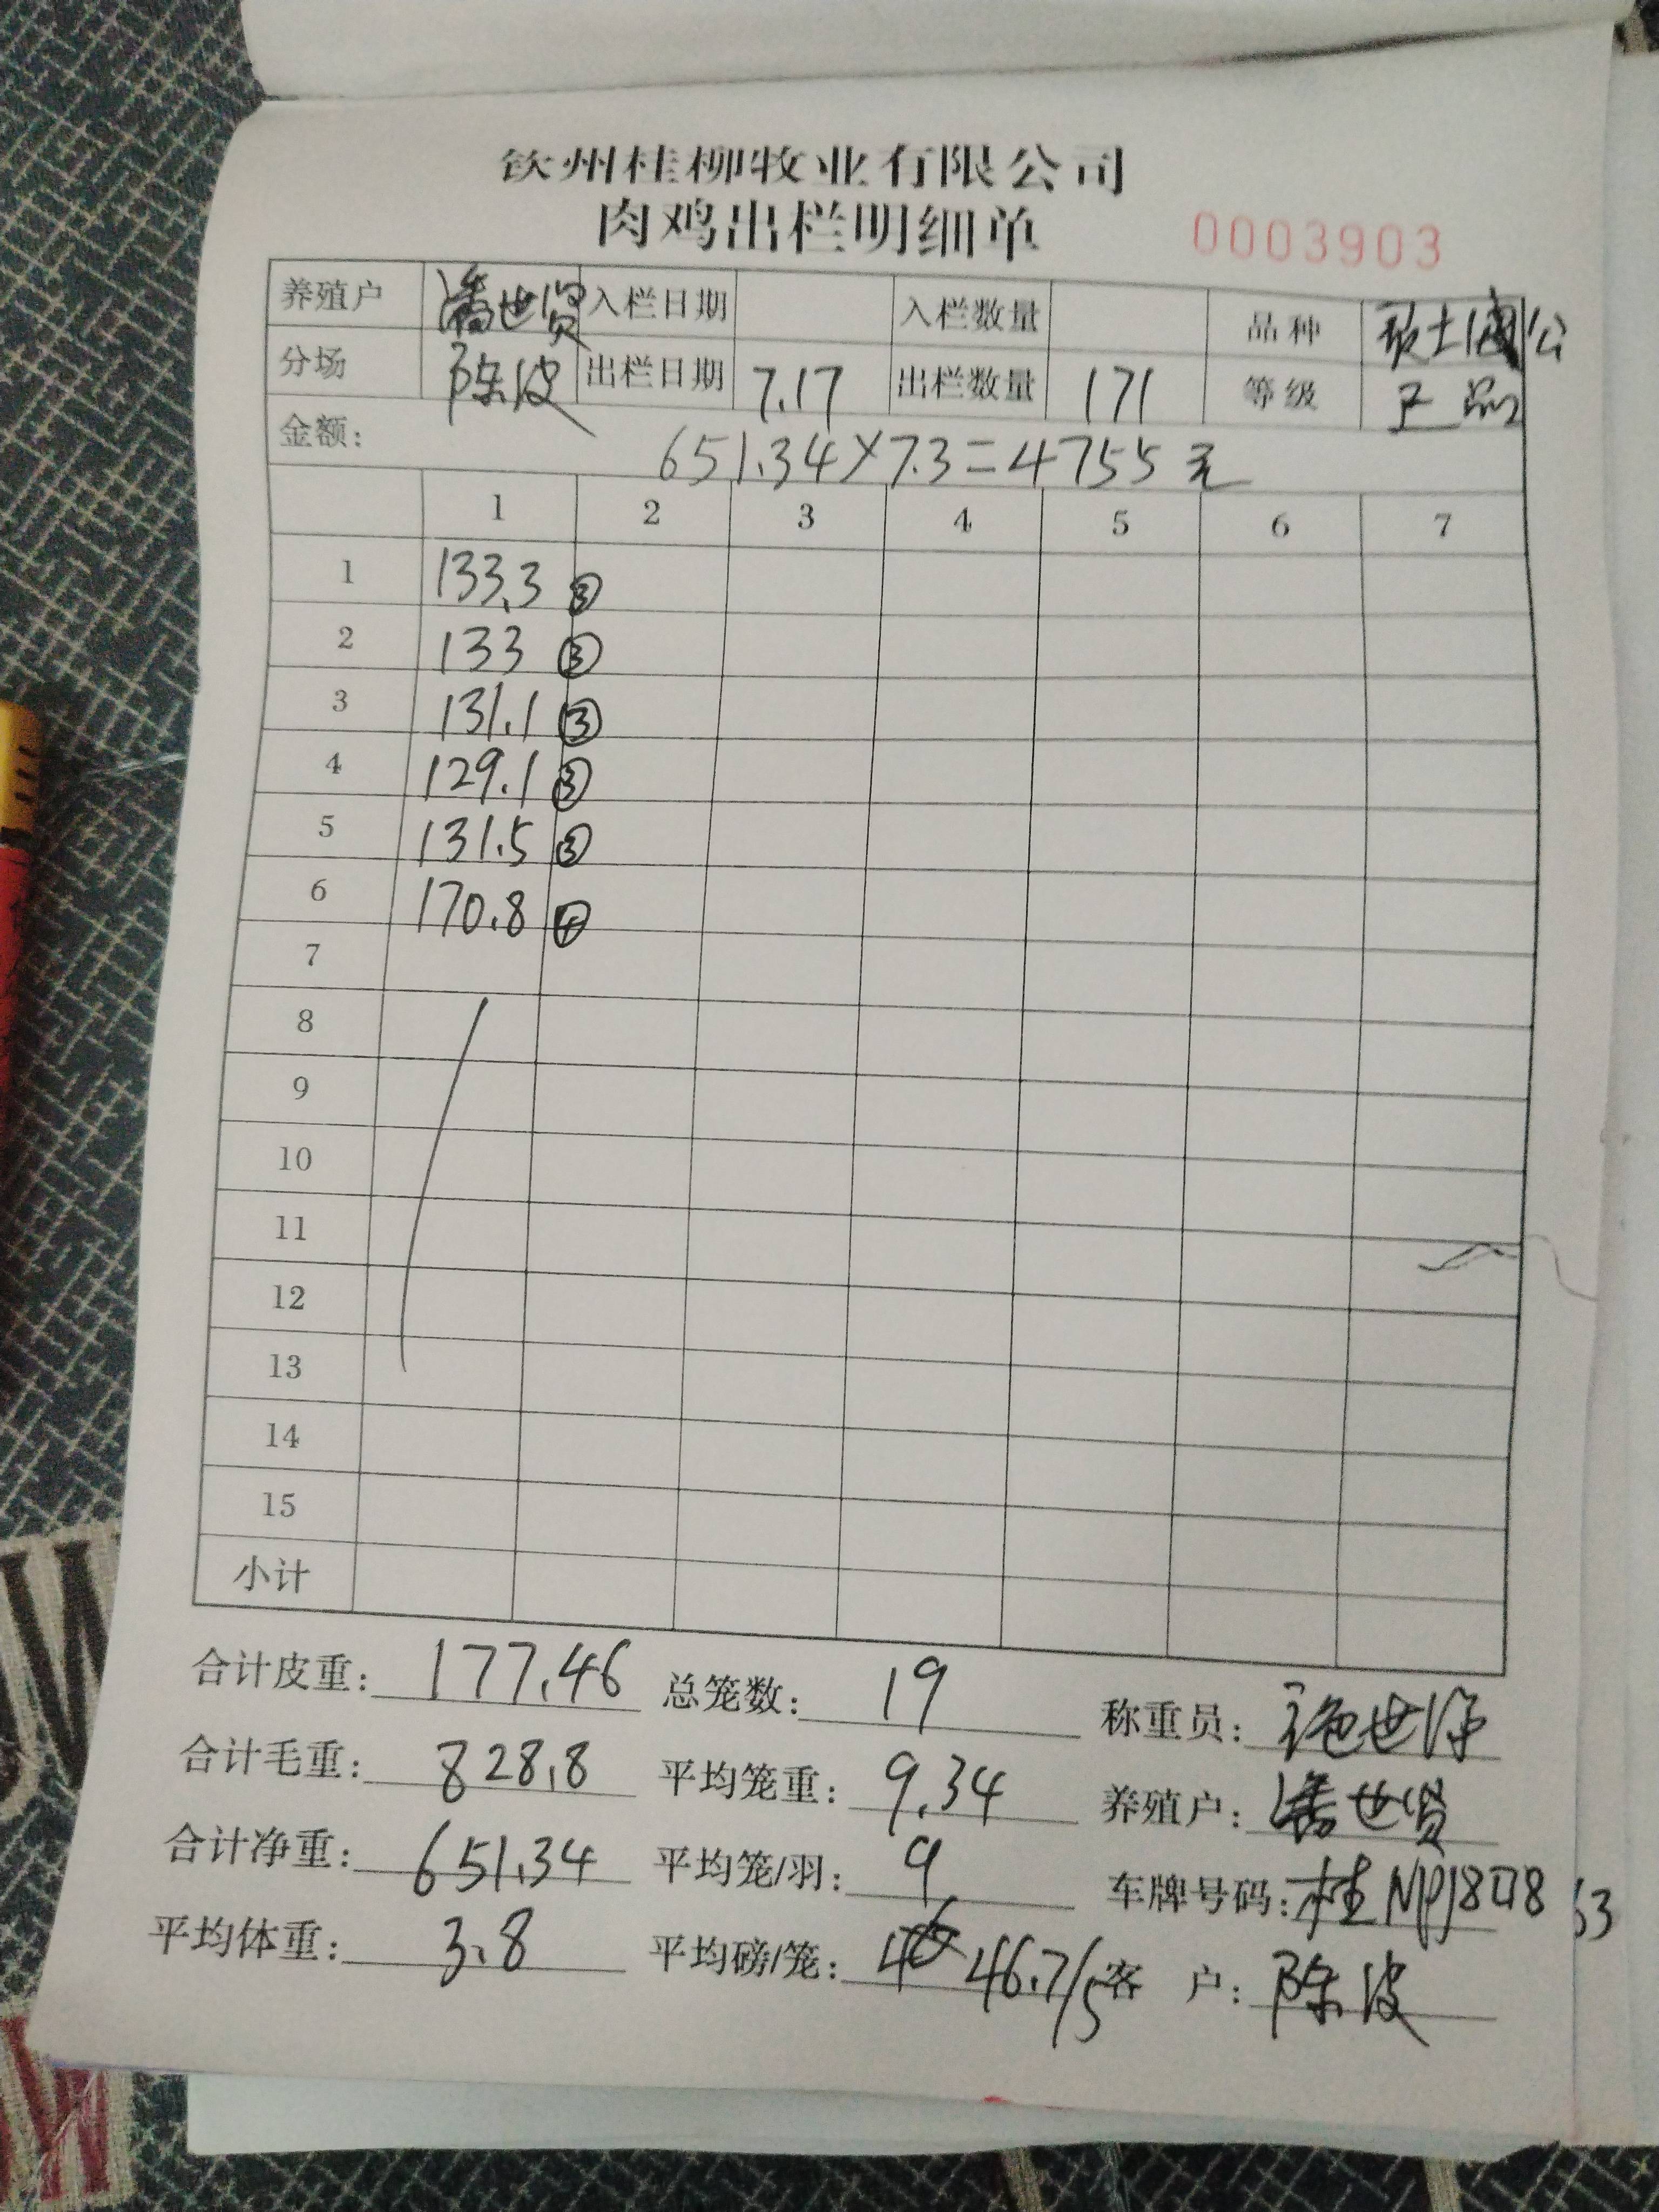 钦州桂柳牧业有限公司
肉鸡出栏明细单 0003903
养殖户 潘世贤 入栏日期 入栏数量 品种 公
分场 陈波 出栏日期 7.17 出栏数量 171 等级 正品
金额: 651.34×7.3=4755元
1 2 3 4 5 6 7
1 133.3 ③
2 133 ③
3 131.1 ③
4 129.1 ③
5 131.5 ③
6 170.8 ④
7
8
9
10
11
12
13
14
15
小计
合计皮重: 177.46 总笼数: 19 称重员:
合计毛重: 828.8 平均笼重: 9.34 养殖户: 潘世贤
合计净重: 651.34 平均笼/羽: 9 车牌号码: 桂
平均体重: 3.8 平均磅/笼: 46.7/5 客 户: 陈波
63